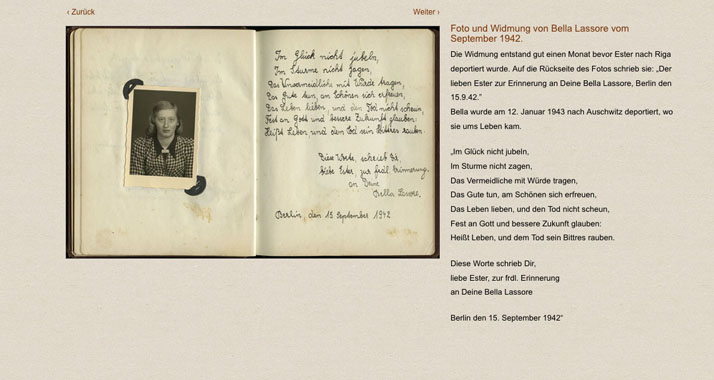 ‹ Zurück
Weiter ›
Im Glück nicht jubeln,
Im Sturme nicht zagen,
Das Unvermeidliche mit Würde tragen,
Das Gute tun, am Schönen sich erfreuen,
Das Leben lieben, und den Tod nicht scheun,
Fest an Gott und bessere Zukunft glauben:
Heißt Leben und dem Tod sein Bittres rauben.
Diese Worte, schrieb Dir,
liebe Ester, zur frdl. Erinnerung.
an Deine
Bella Lassore.
Berlin, den 15 September 1942
Foto und Widmung von Bella Lassore vom
September 1942.
Die Widmung entstand gut einen Monat bevor Ester nach Riga
deportiert wurde. Auf die Rückseite des Fotos schrieb sie: „Der
lieben Ester zur Erinnerung an Deine Bella Lassore, Berlin den
15.9.42.“
Bella wurde am 12. Januar 1943 nach Auschwitz deportiert, wo
sie ums Leben kam.
„Im Glück nicht jubeln,
Im Sturme nicht zagen,
Das Vermeidliche mit Würde tragen,
Das Gute tun, am Schönen sich erfreuen,
Das Leben lieben, und den Tod nicht scheun,
Fest an Gott und bessere Zukunft glauben:
Heißt Leben, und dem Tod sein Bittres rauben.
Diese Worte schrieb Dir,
liebe Ester, zur frdl. Erinnerung
an Deine Bella Lassore
Berlin den 15. September 1942“